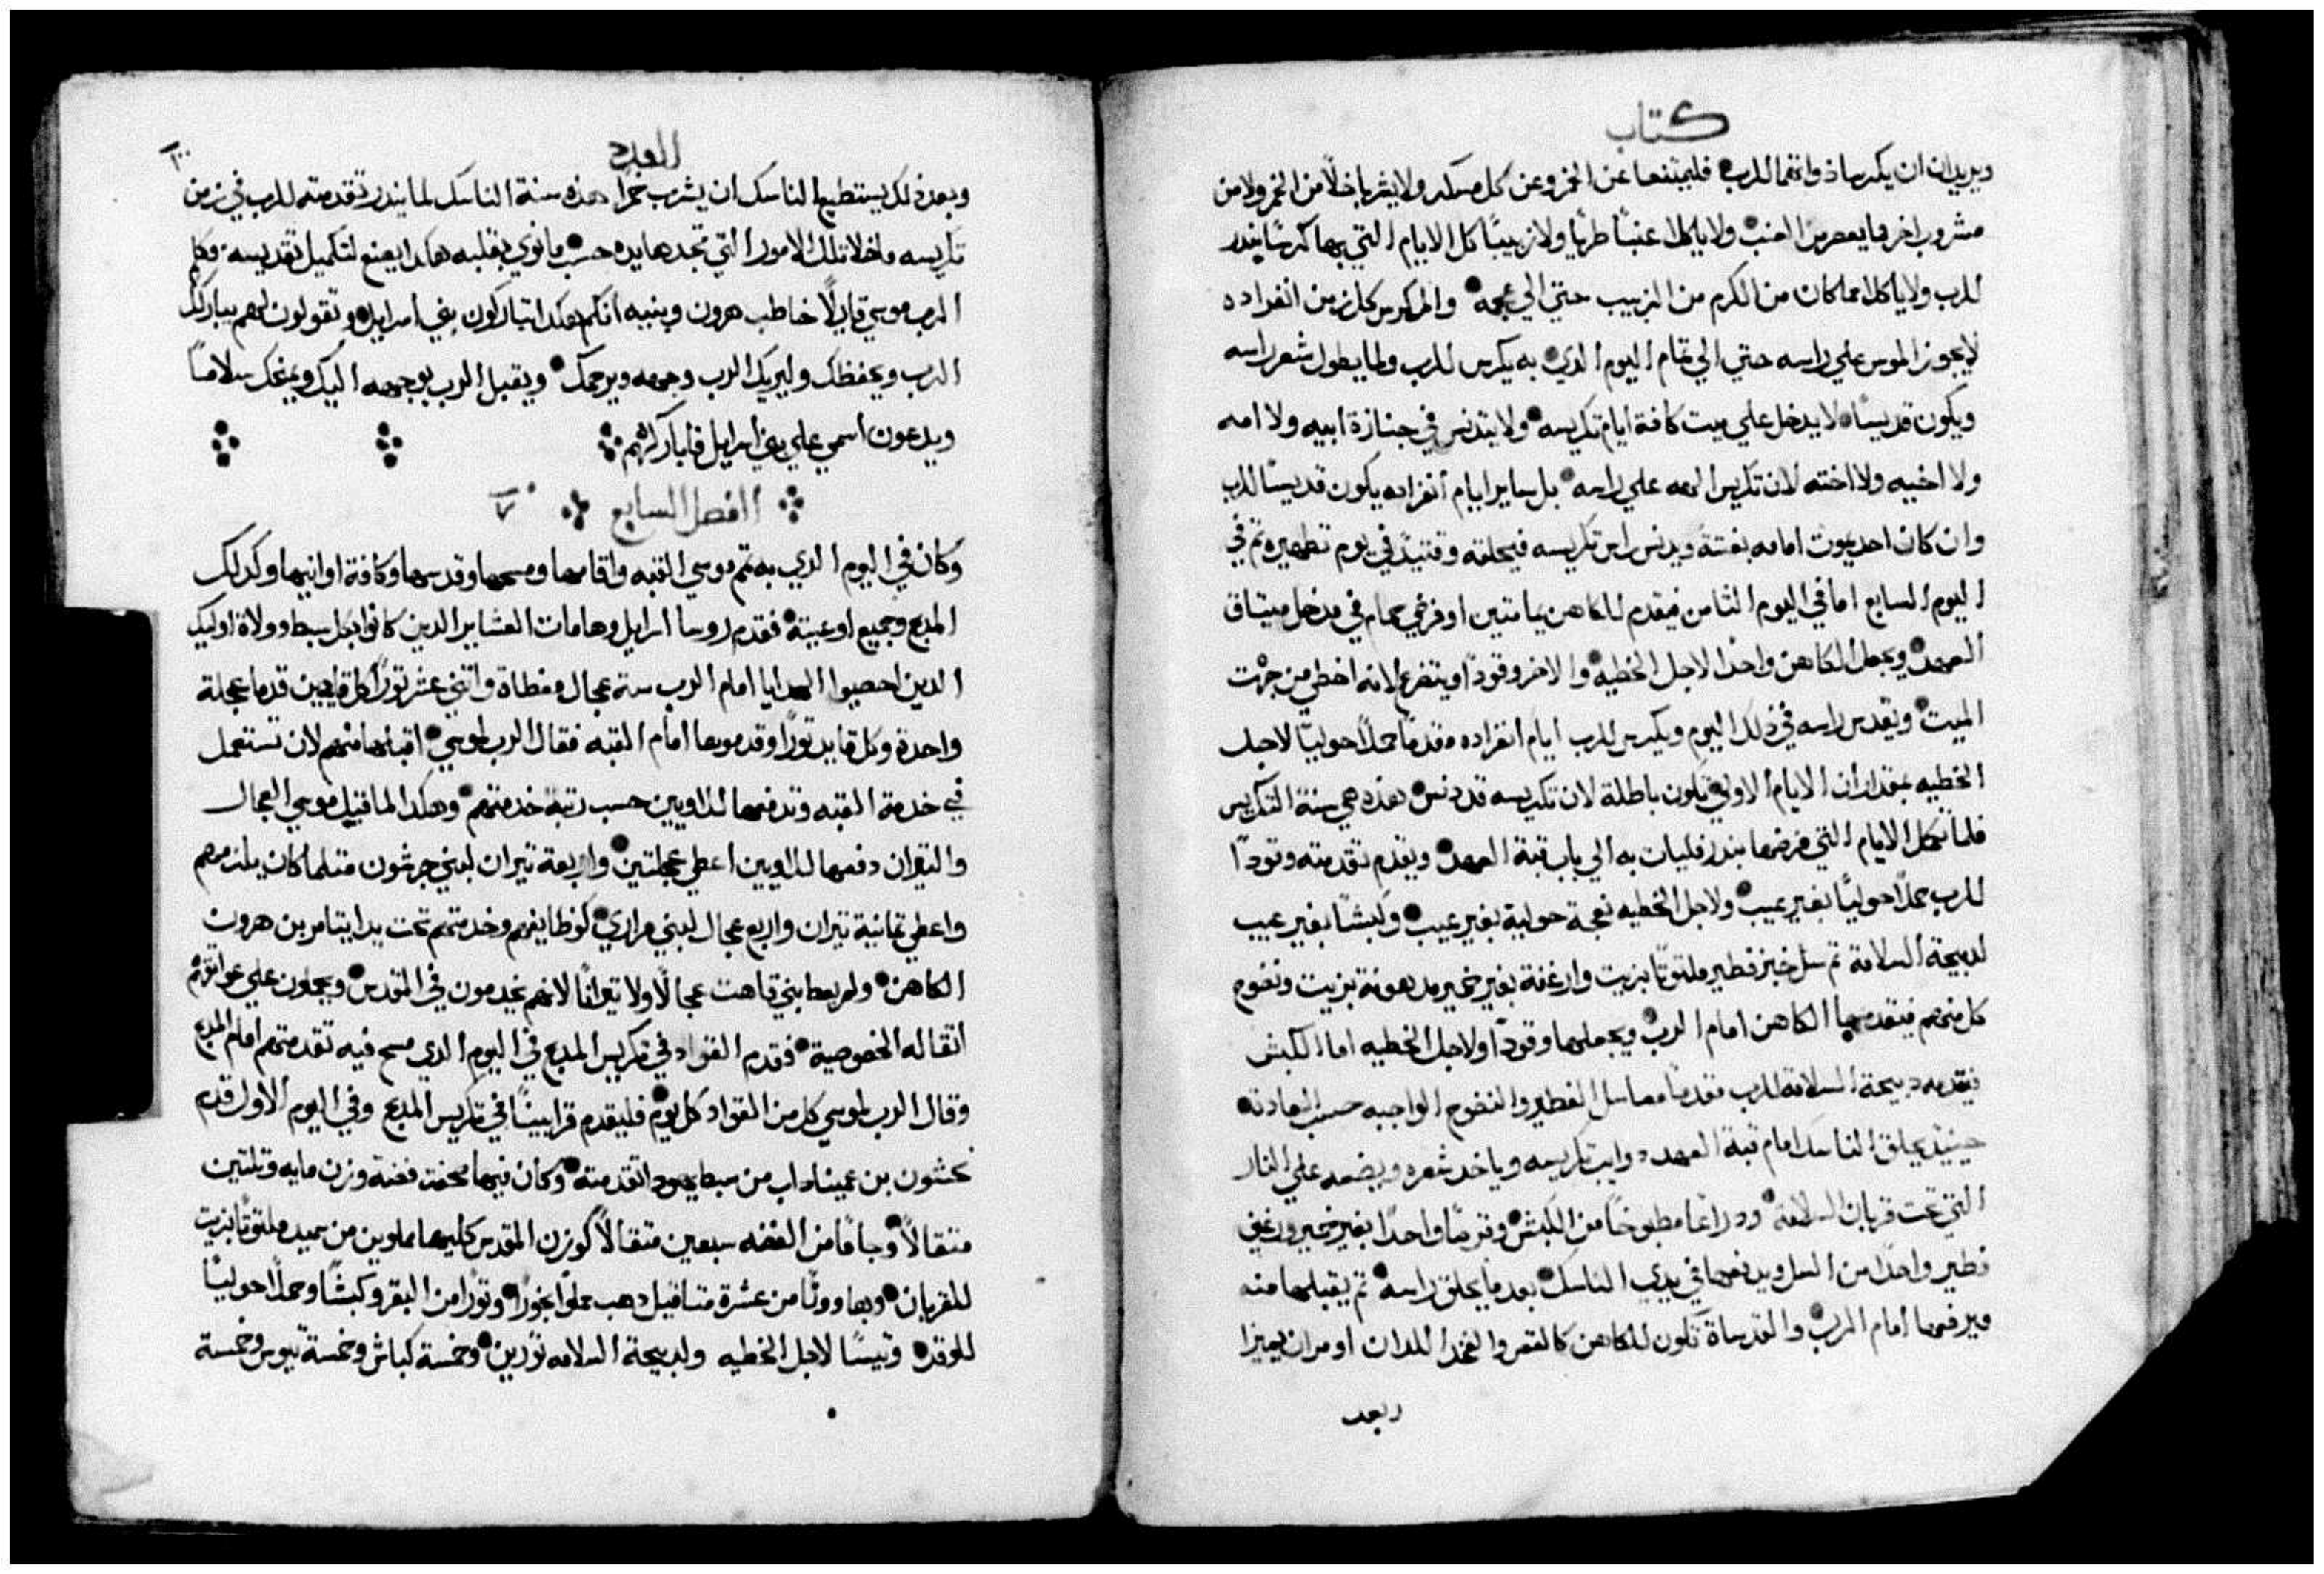 كتاب
ويريدان ان يكرسا ذواتهما للرب فليمتنعا عن الخمر وعن كل مسكر ولا يشربا خلًا من الخمر ولا من
مشروب اخر مما يعصر من العنب ولا ياكلا عنبًا طريًا ولا زبيبًا كل الايام التي بهما كرسا بنذر
للرب ولا ياكلا مما كان من الكرم من الزبيب حتي الي عجمه والمكرس كل زمن انفراده
لا يجوز الموس علي راسه حتي الي تمام اليوم الدي به يكرس للرب ولما يطول شعر راسه
ويكون قديسًا لا يدخل علي ميت كافة ايام تكريسه ولا يتدنس في جنازة ابيه ولا امه
ولا اخيه ولا اخته لان تكريس الهه علي راسه بل ساير ايام انفراده يكون قديسًا للرب
وان كان احد يموت امامه بغتة ويدنس راس تكريسه فيحلقه وقتيدٍ في يوم تطهيره ثم في
اليوم السابع اما في اليوم الثامن فيقدم للكاهن يمامتين او فرخي حمام في مدخل ميتاق
العهد ويعمل الكاهن واحدًا لاجل الخطيه والاخر وقودًا ويتضرع لانه اخطي من جهت
الميت ويقدس راسه في ذلك اليوم ويكرس للرب ايام انفراده مقدمًا حملًا حوليًا لاجل
الخطيه بمقدار ان الايام الاولي تكون باطلة لان تكريسه قد دنس هذه هي سنة التكريس
فلما تكمل الايام التي فرضها بنذر فليات به الي باب قبة العهد ويقدم تقدمته وقودًا
للرب حملًا حوليًا بغير عيب ولاجل الخطيه نعجة حولية بغير عيب وكبشًا بغير عيب
لدبيحة السلامة ثم سل خبز فطير ملتوتًا بزيت وارغفة بغير خمير مدهونة بزيت ونضوح
كل منهم فيقدمها الكاهن امام الرب ويعملهما وقودًا ولاجل الخطيه اما الكبش
فيقدمه دبيحة السلامة للرب مقدمًا معا سل الفطير والنضوح الواجبه حسب العادة
حينيدٍ يحلق الناسك امام قبة العهد دوايب تكريسه وياخد شعره ويضعه علي النار
التي تحت قربان السلامة ودراعًا مطبوخًا من الكبش وقرصًا واحدًا بغير خمير ورغيف
فطير واحدًا من السل ويدفعهما في يدي الناسك بعد ما يحلق راسه ثم يقبلهما منه
ويرفعهما امام الرب والمقدساة تكون للكاهن كالقص والفخد اللدان اومران يميزا
وبعد
العدد
وبعد ذلك يستطيع الناسك ان يشرب خمرًا هذه سنة الناسك لما يندر تقدمته للرب في زمن
تكريسه ماخلا تلك الامور التي تجدها يده حسب ما نوي بقلبه هكدا يصنع لتكميل تقديسه وكلم
الرب موسي قايلًا خاطب هرون وبنيه انكم هكدا تباركون بني اسراييل وتقولون لهم يباركك
الرب ويحفظك وليريك الرب وجهه ويرحمك ويقبل الرب بوجهه اليك ويمنحك سلامًا
ويدعون اسمي علي بني اسراييل فاباركهم
الفصل السابع ٧
وكان في اليوم الدي به تم موسي القبه واقامها ومسحها وقدسها وكافة اوانيها وكدلك
المدبح وجميع اوعيته فقدم روسا اسراييل وهامات العشاير الدين كانوا بكل سبط وولاة اوليك
الدين احصيوا الهدايا امام الرب ستة عجال مغطاة واتني عشر تورًا كل قايدين قدما عجلة
واحدة وكل قايد تورًا وقدموها امام القبه فقال الرب لموسي اقبلها منهم لان تستعمل
في خدمة القبه وتدفعها للاويين حسب رتبة خدمتهم وهكدا لما قبيل موسي العجال
والتيران دفعها للاويين اعطي عجلتين واربعة تيران لبني جرشون متلما كان يلزمهم
واعطي تمانية تيران واربع عجال لبني مراري كوظايفهم وخدمتهم تحت يد ايتامر بن هرون
الكاهن ولم يعط بني قاهت عجالًا ولا تيرانًا لانهم يخدمون في القدس ويحملون علي عواتقهم
اتقاله الخصوصية فقدم القواد في تكريس المدبح في اليوم الدي مسح فيه تقدمتهم امام المدبح
وقال الرب لموسي كل من القواد كل يوم فليقدم قرابينًا في تكريس المدبح وفي اليوم الاول قدم
نحشون بن عميناداب من سبط يهودا تقدمته وكان فيها صحفة فضة وزن مايه وتلتين
متقالًا وجامًا من الفضه سبعين متقالًا كوزن المقدس كليهما مملوين من سميد ملتوتًا بزيت
للقربان وهاوونًا من عشرة متاقيل دهب مملوا بخورًا وتورًا من البقر وكبشًا وحملًا حوليًا
للوقده وتيسًا لاجل الخطيه ولدبيحة السلامه تورين وخمسة كباش وخمسة تيوس وخمسة